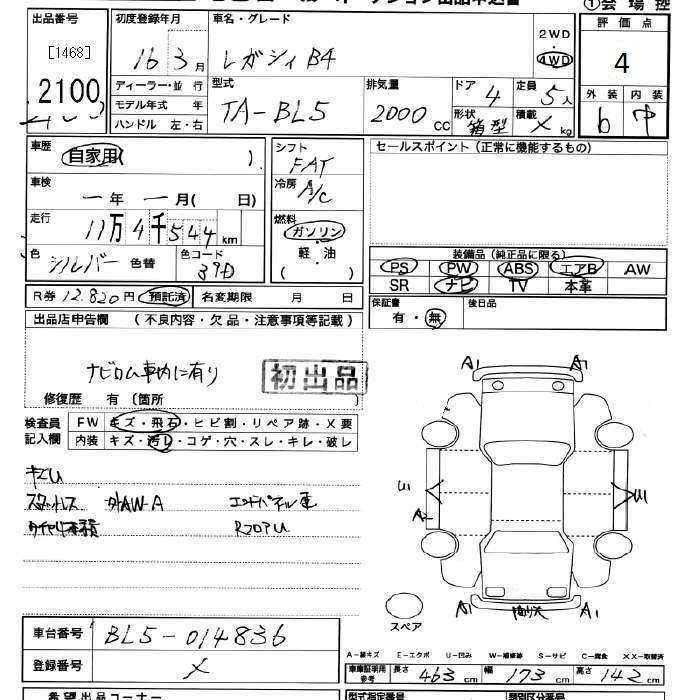 出品番号 初度登録年月 車名・グレード ①会場控
[1468] 16 3月 レガシィ B4 2WD 4WD 評価点
2100 4
ディーラー・並行 型式 排気量 ドア 定員
モデル年式 年 TA-BL5 2000cc 4 5人 外装 内装
ハンドル 左・右 形状 箱型 積載 X kg b 中
車歴 自家用( ) シフト FAT セールスポイント(正常に機能するもの)
車検 ー年 ー月( 日) 冷房 A/C
走行 11万4千544km 燃料 ガソリン
軽油
( )
色 シルバー 色替 色コード 39D 装備品(純正品に限る)
PS PW ABS エアB AW
SR ナビ TV 本革
R券 12.820円 預託済 名変期限 月 日 保証書 有・無 後日品
出品店申告欄 (不良内容・欠品・注意事項等記載)
ナビロム車内に有り
初出品
修復歴 有〔箇所 〕
検査員記入欄 FW キズ・飛石・ヒビ割・リペア跡・X要
内装 キズ・汚レ・コゲ・穴・スレ・キレ・破レ
スタットレス 外AW-A
RフロアU
A1 A1
U1 U1
A2
A1 A1
スペア
車台番号 BL5-014836
登録番号 X
A-線キズ E-エクボ U-凹み W-補修跡 S-サビ C-腐食 XX-取替済
車庫証明用参考 長さ 463cm 幅 173cm 高さ 142cm
希望出品コーナー 型式指定番号 類別区分番号